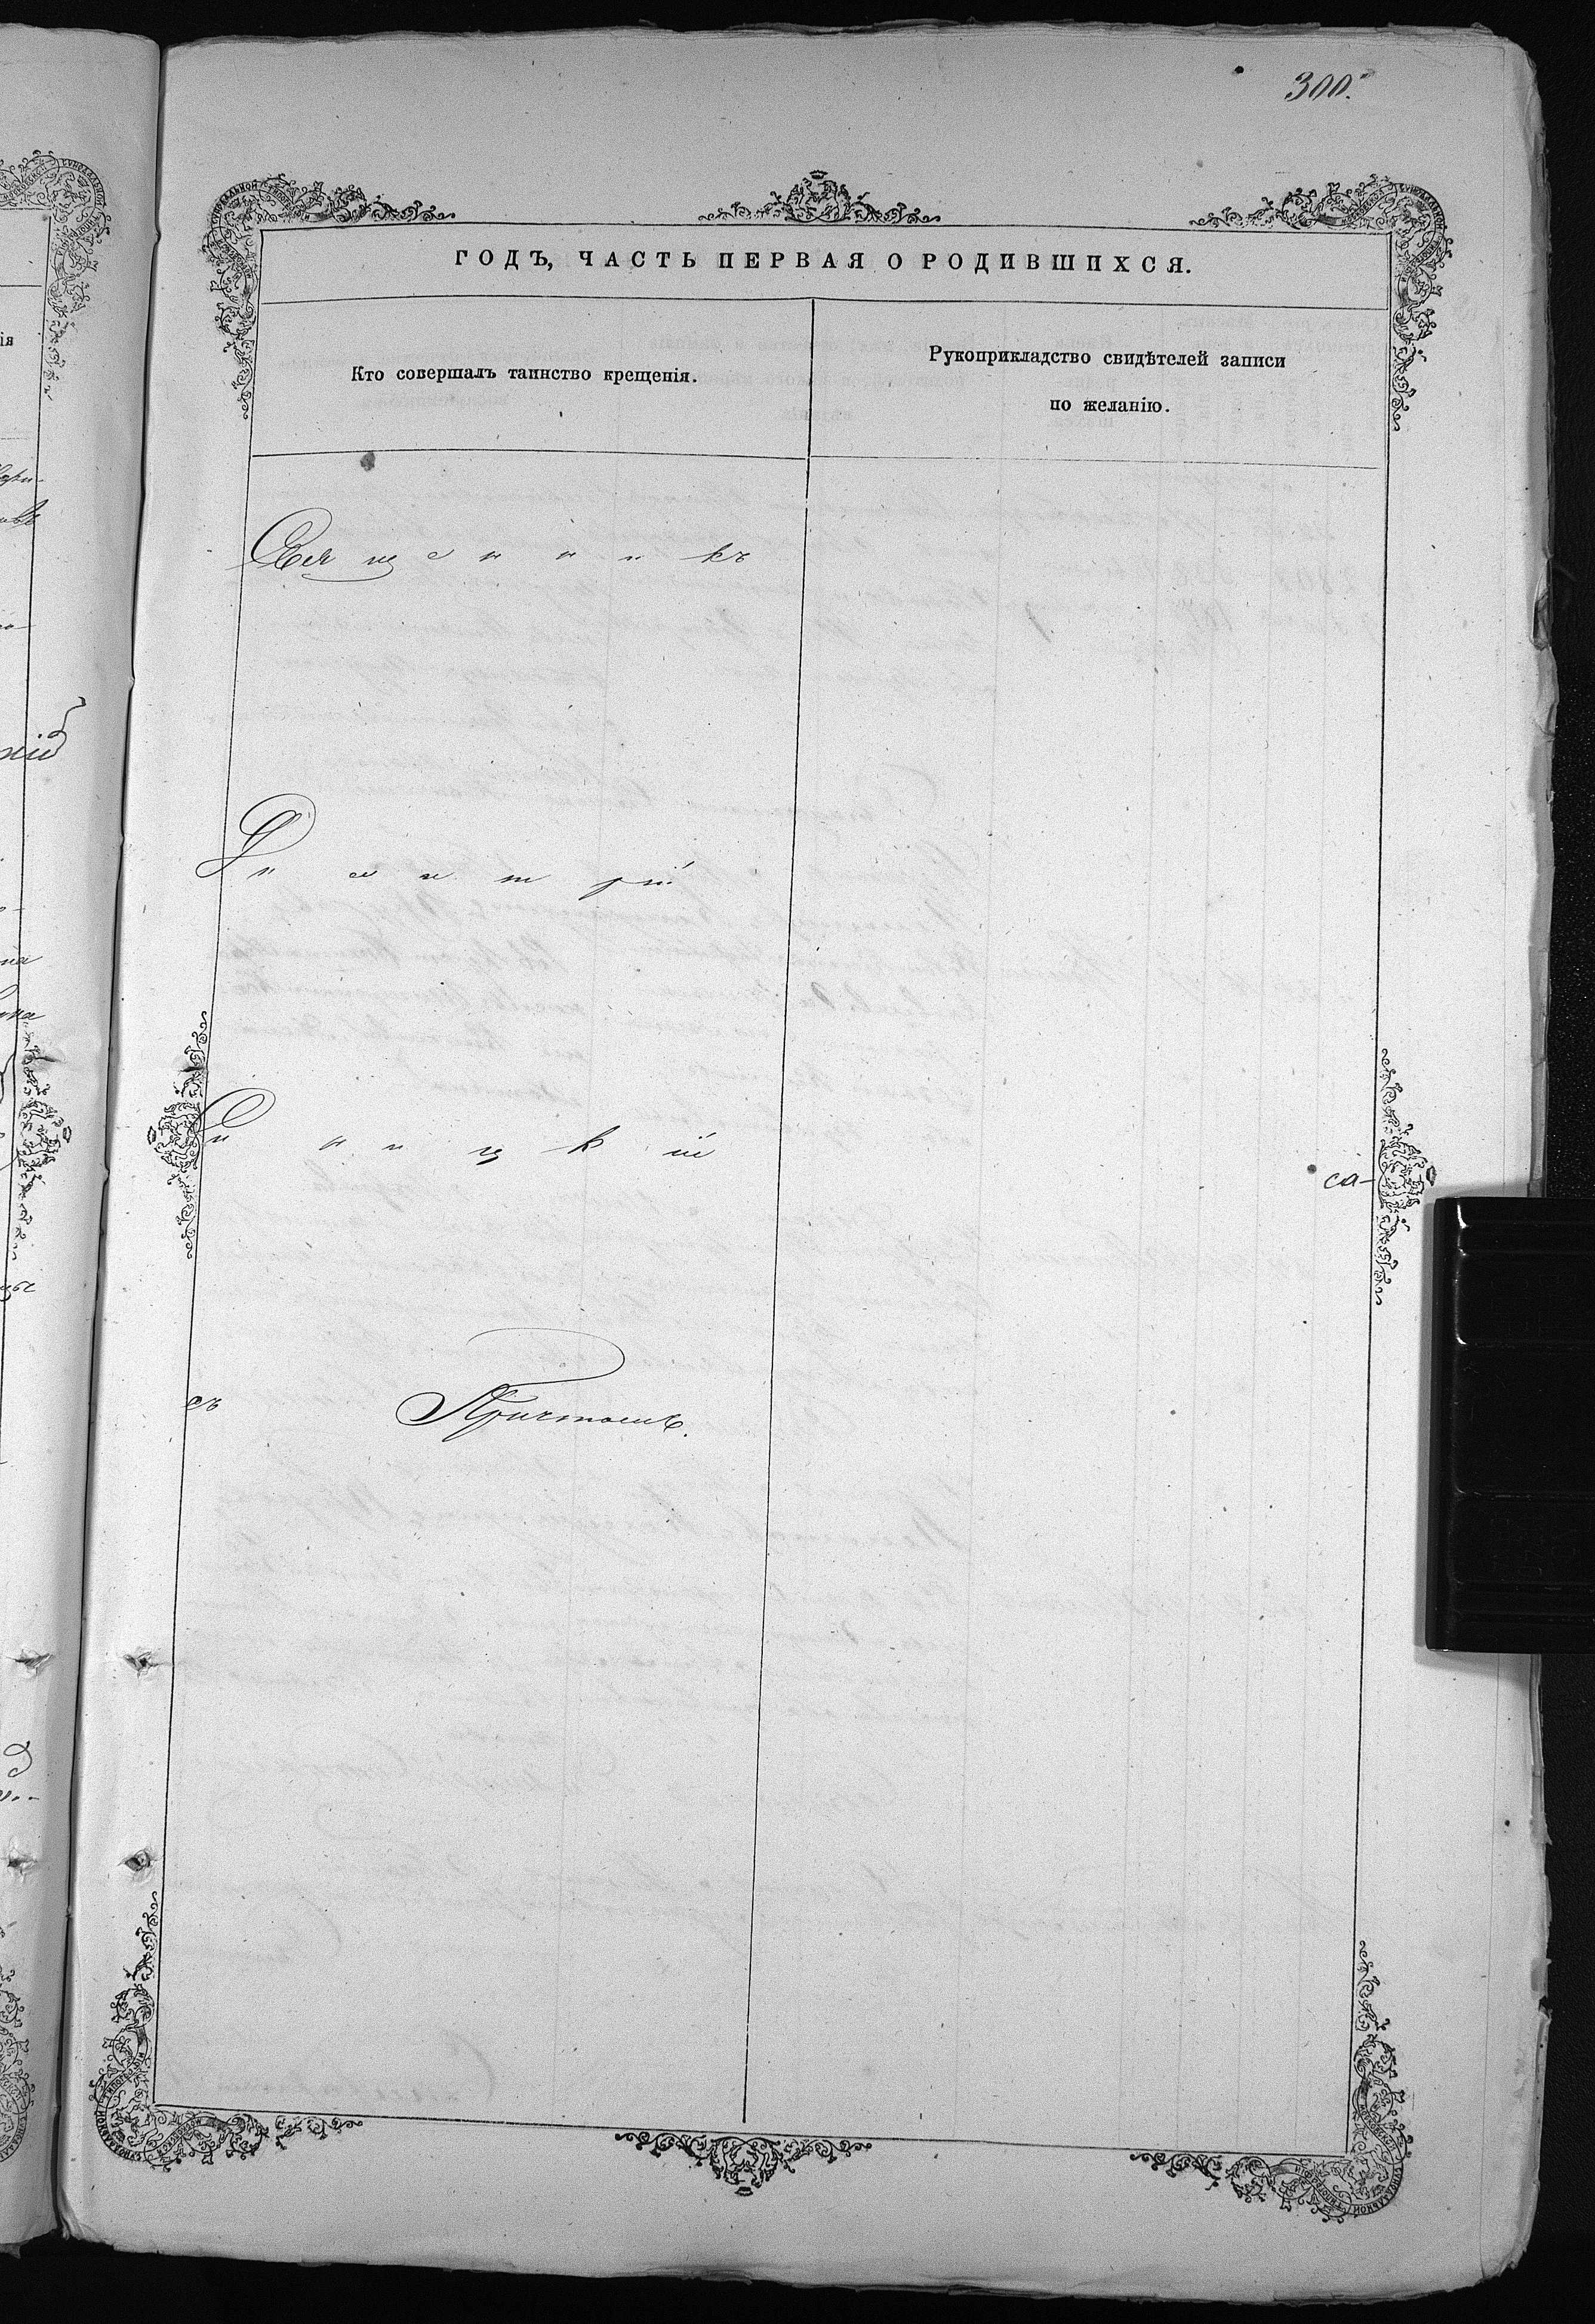 300.
ГОДЪ, ЧАСТЬ ПЕРВАЯ О РОДИВШИХСЯ.
Кто совершалъ таинство крещенія.
Рукоприкладство свидѣтелей записи
по желанію.
Священникъ
Димитрій
са-
съ Причтомъ.